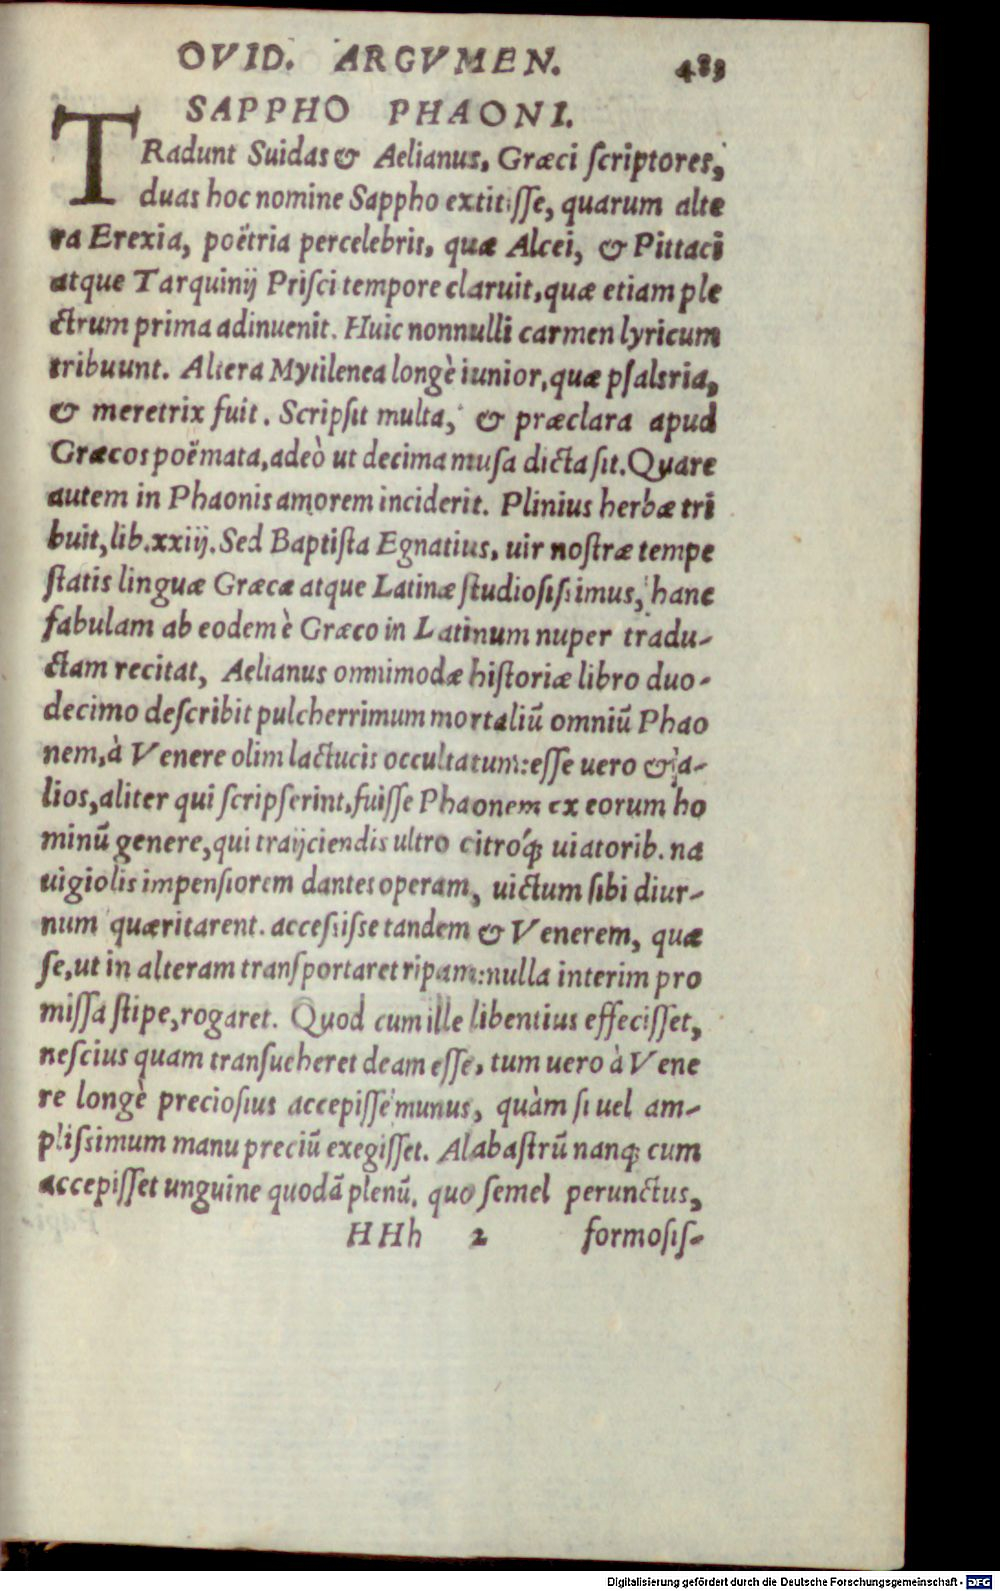 OVID. ARGVMEN. 483
SAPPHO PHAONI.
TRadunt Suidas & Aelianus, Græci ſcriptores,
duas hoc nomine Sappho extitiſſe, quarum alte
ra Erexia, poëtria percelebris, quæ Alcei, & Pittaci
atque Tarquinij Priſci tempore claruit, quæ etiam ple
ctrum prima adinuenit. Huic nonnulli carmen lyricum
tribuunt. Altera Mytilenea longè iunior, quæ pſalsria,
& meretrix fuit. Scripſit multa, & præclara apud
Græcos poëmata, adeò ut decima muſa dicta ſit. Quare
autem in Phaonis amorem inciderit. Plinius herbæ tri
buit, lib. xxiij. Sed Baptiſta Egnatius, uir noſtræ tempe
ſtatis linguæ Græcæ atque Latinæ ſtudioſiſsimus, hanc
fabulam ab eodem è Græco in Latinum nuper tradu-
ctam recitat, Aelianus omnimodæ hiſtoriæ libro duo-
decimo deſcribit pulcherrimum mortaliũ omniũ Phao
nem, à Venere olim lactucis occultatum: eſſe uero & a-
lios, aliter qui ſcripſerint, fuiſſe Phaonem ex eorum ho
minũ genere, qui traijciendis ultro citróq; uiatorib. na
uigiolis impenſiorem dantes operam, uictum ſibi diur-
num quæritarent. acceſsiſse tandem & Venerem, quæ
ſe, ut in alteram tranſportaret ripam: nulla interim pro
miſſa ſtipe, rogaret. Quod cum ille libentius effeciſſet,
neſcius quam tranſueheret deam eſſe, tum uero à Vene
re longè precioſius accepiſſe munus, quàm ſi uel am-
pliſsimum manu preciũ exegiſſet. Alabaſtrũ nanq; cum
accepiſſet unguine quodã plenũ, quo ſemel perunctus,
HHh 2 formoſiſ-
Digitalisierung gefördert durch die Deutsche Forschungsgemeinschaft - DFG